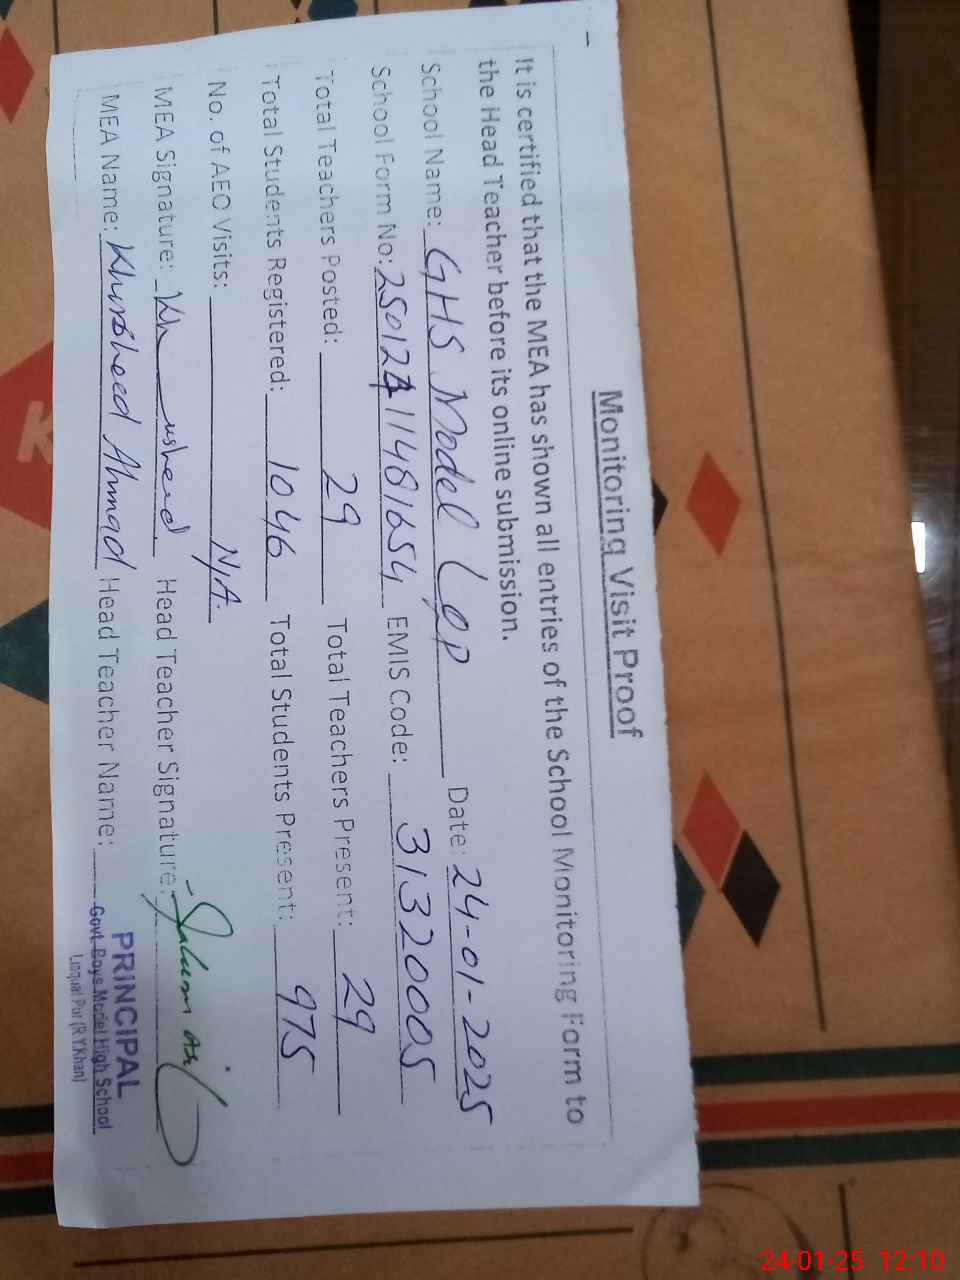 Monitoring Visit Proof
It is certified that the MEA has shown all entries of the School Monitoring Form to
the Head Teacher before its online submission.
School Name: GHS Model LQP Date: 24-01-2025
School Form No: EMIS Code: 31320005
Total Teachers Posted: 29 Total Teachers Present: 29
Total Students Registered: 1046 Total Students Present: 975
No. of AEO Visits: N/A.
MEA Signature: Kh usheed Head Teacher Signature:
MEA Name: Khursheed Ahmad Head Teacher Name:
PRINCIPAL
Govt. Boys Model High School
Liaqat Pur (R.Y.Khan)
24-01-25 12:10